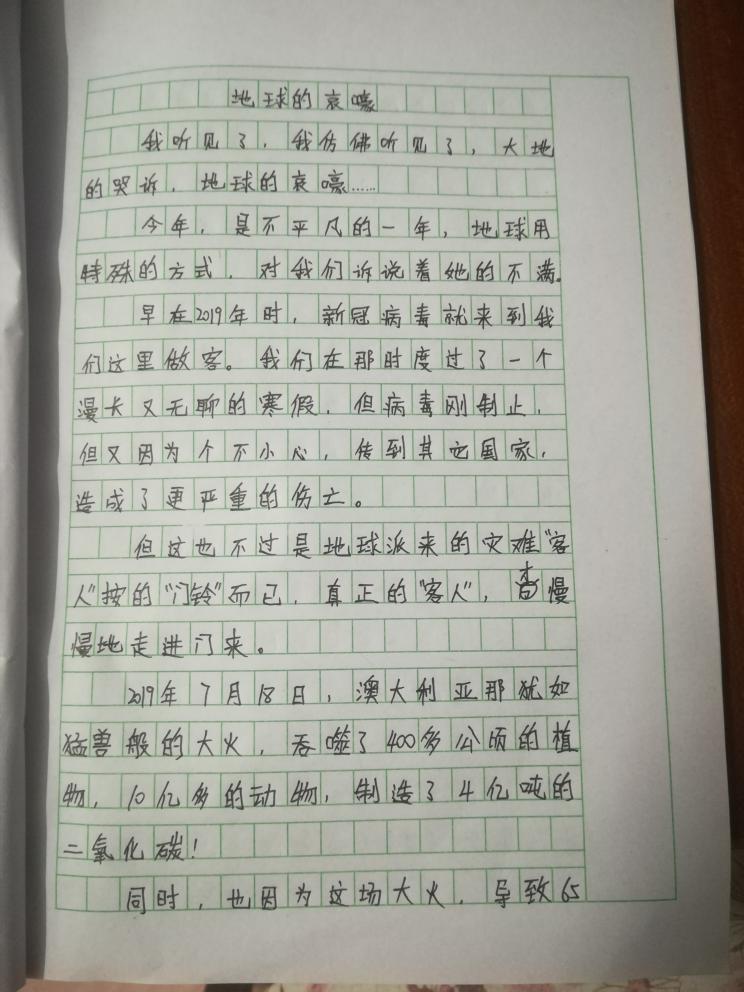 地球的哀嚎
我听见了，我仿佛听见了，大地
的哭诉，地球的哀嚎……
今年，是不平凡的一年，地球用
特殊的方式，对我们诉说着她的不满。
早在2019年时，新冠病毒就来到我
们这里做客。我们在那时度过了一个
漫长又无聊的寒假，但病毒刚制止，
但又因为个不小心，传到其它国家，
造成了更严重的伤亡。
但这也不过是地球派来的灾难“客
人”按的“门铃”而已，真正的“客人”，慢
慢地走进门来。
2019年7月18日，澳大利亚那犹如
猛兽般的大火，吞噬了400多公顷的植
物，10亿多的动物，制造了4亿吨的
二氧化碳！
同时，也因为这场大火，导致65